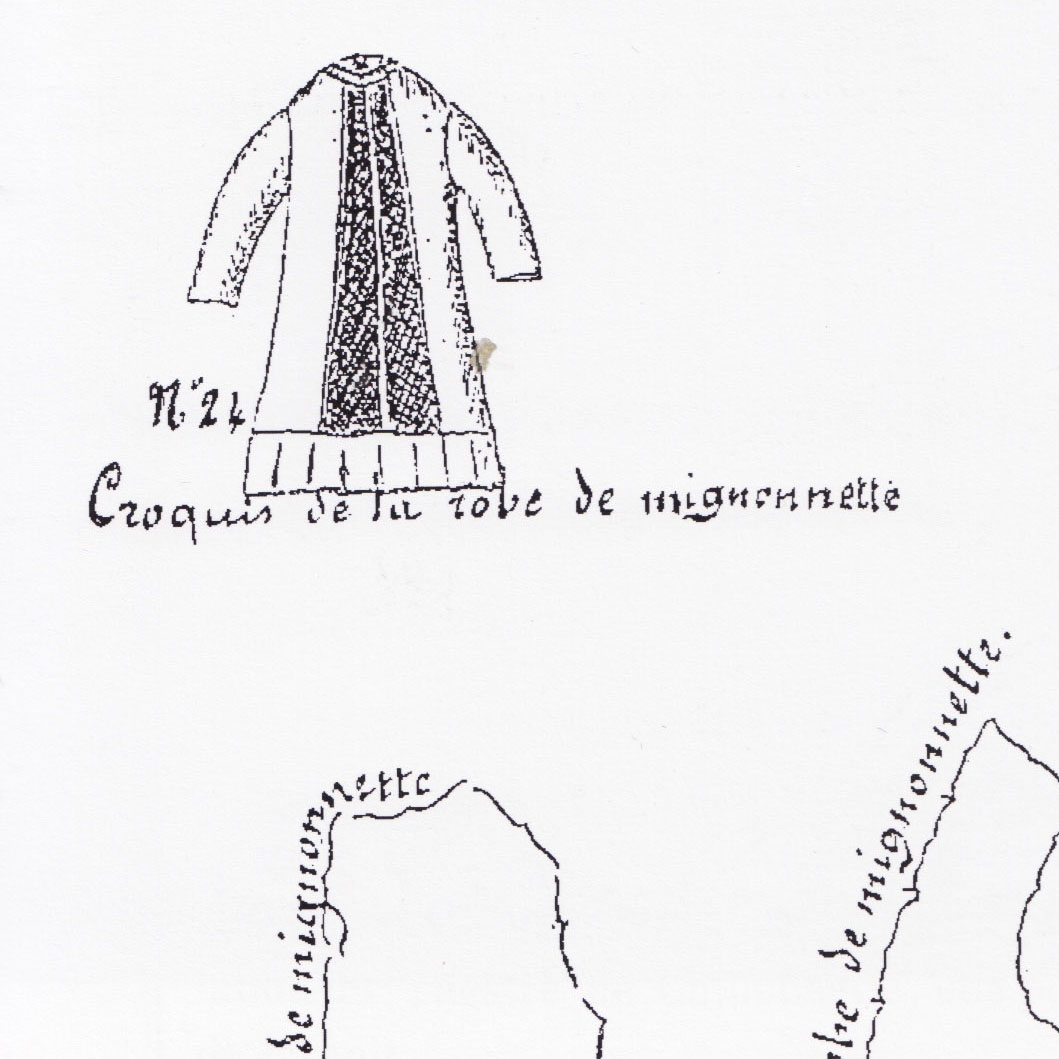 N.º 24
Croquis de la robe de mignonnette
de mignonnette
de mignonnette.